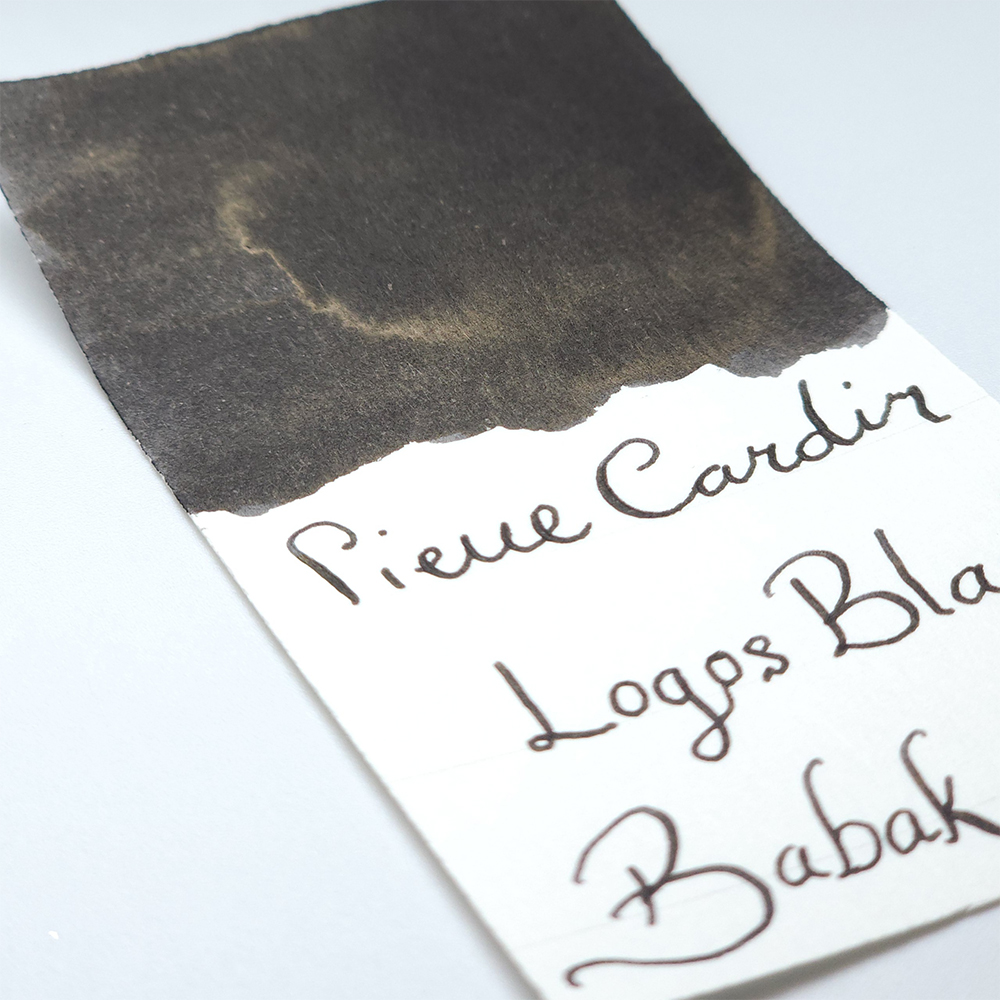 Pierre Cardin
Logos Bla
Babak